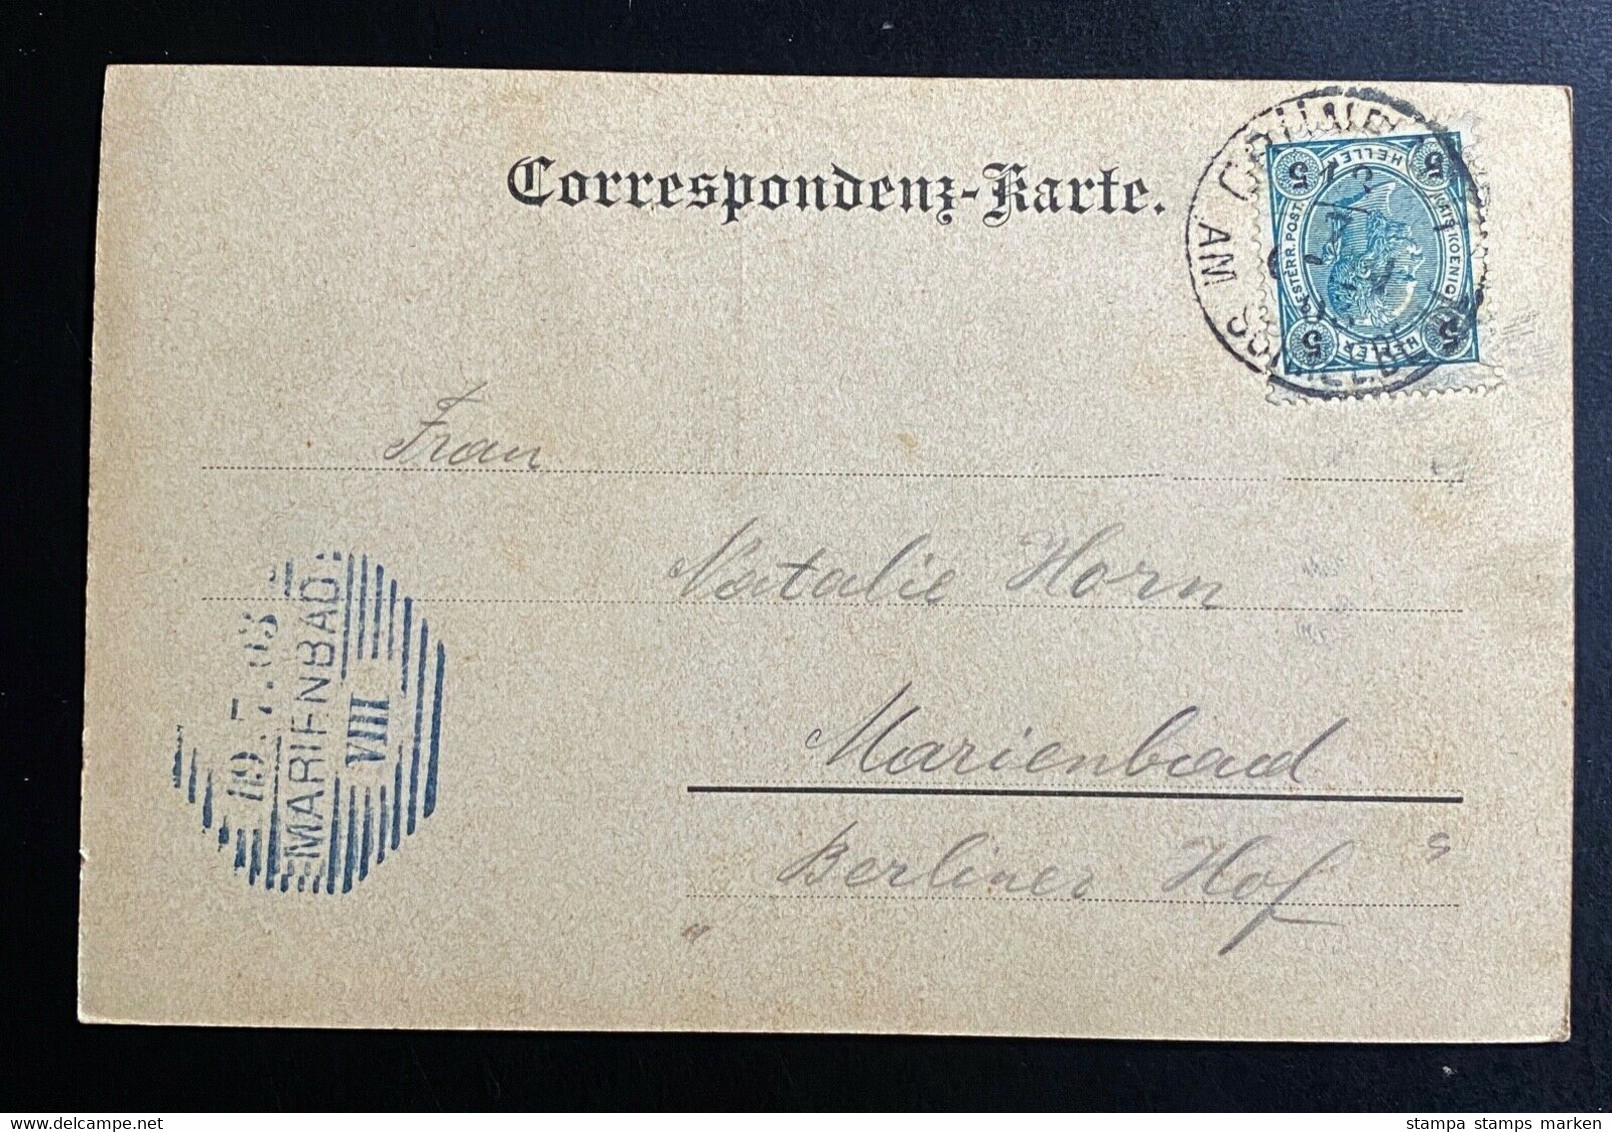 Correspondenz-Karte.
AM
5 HELLER 5
KAIS. KOENIGL. OESTERR. POST
5 HELLER 5
Frau
Natalie Horn
Marienbad
„Berliner Hof“
MARIENBAD
VIII
stampa stamps marken